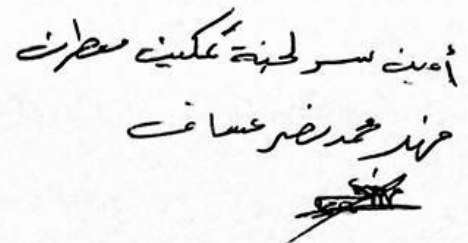 أمين سر لجنة تمكين معطرت
مهند محمد نصر عساف